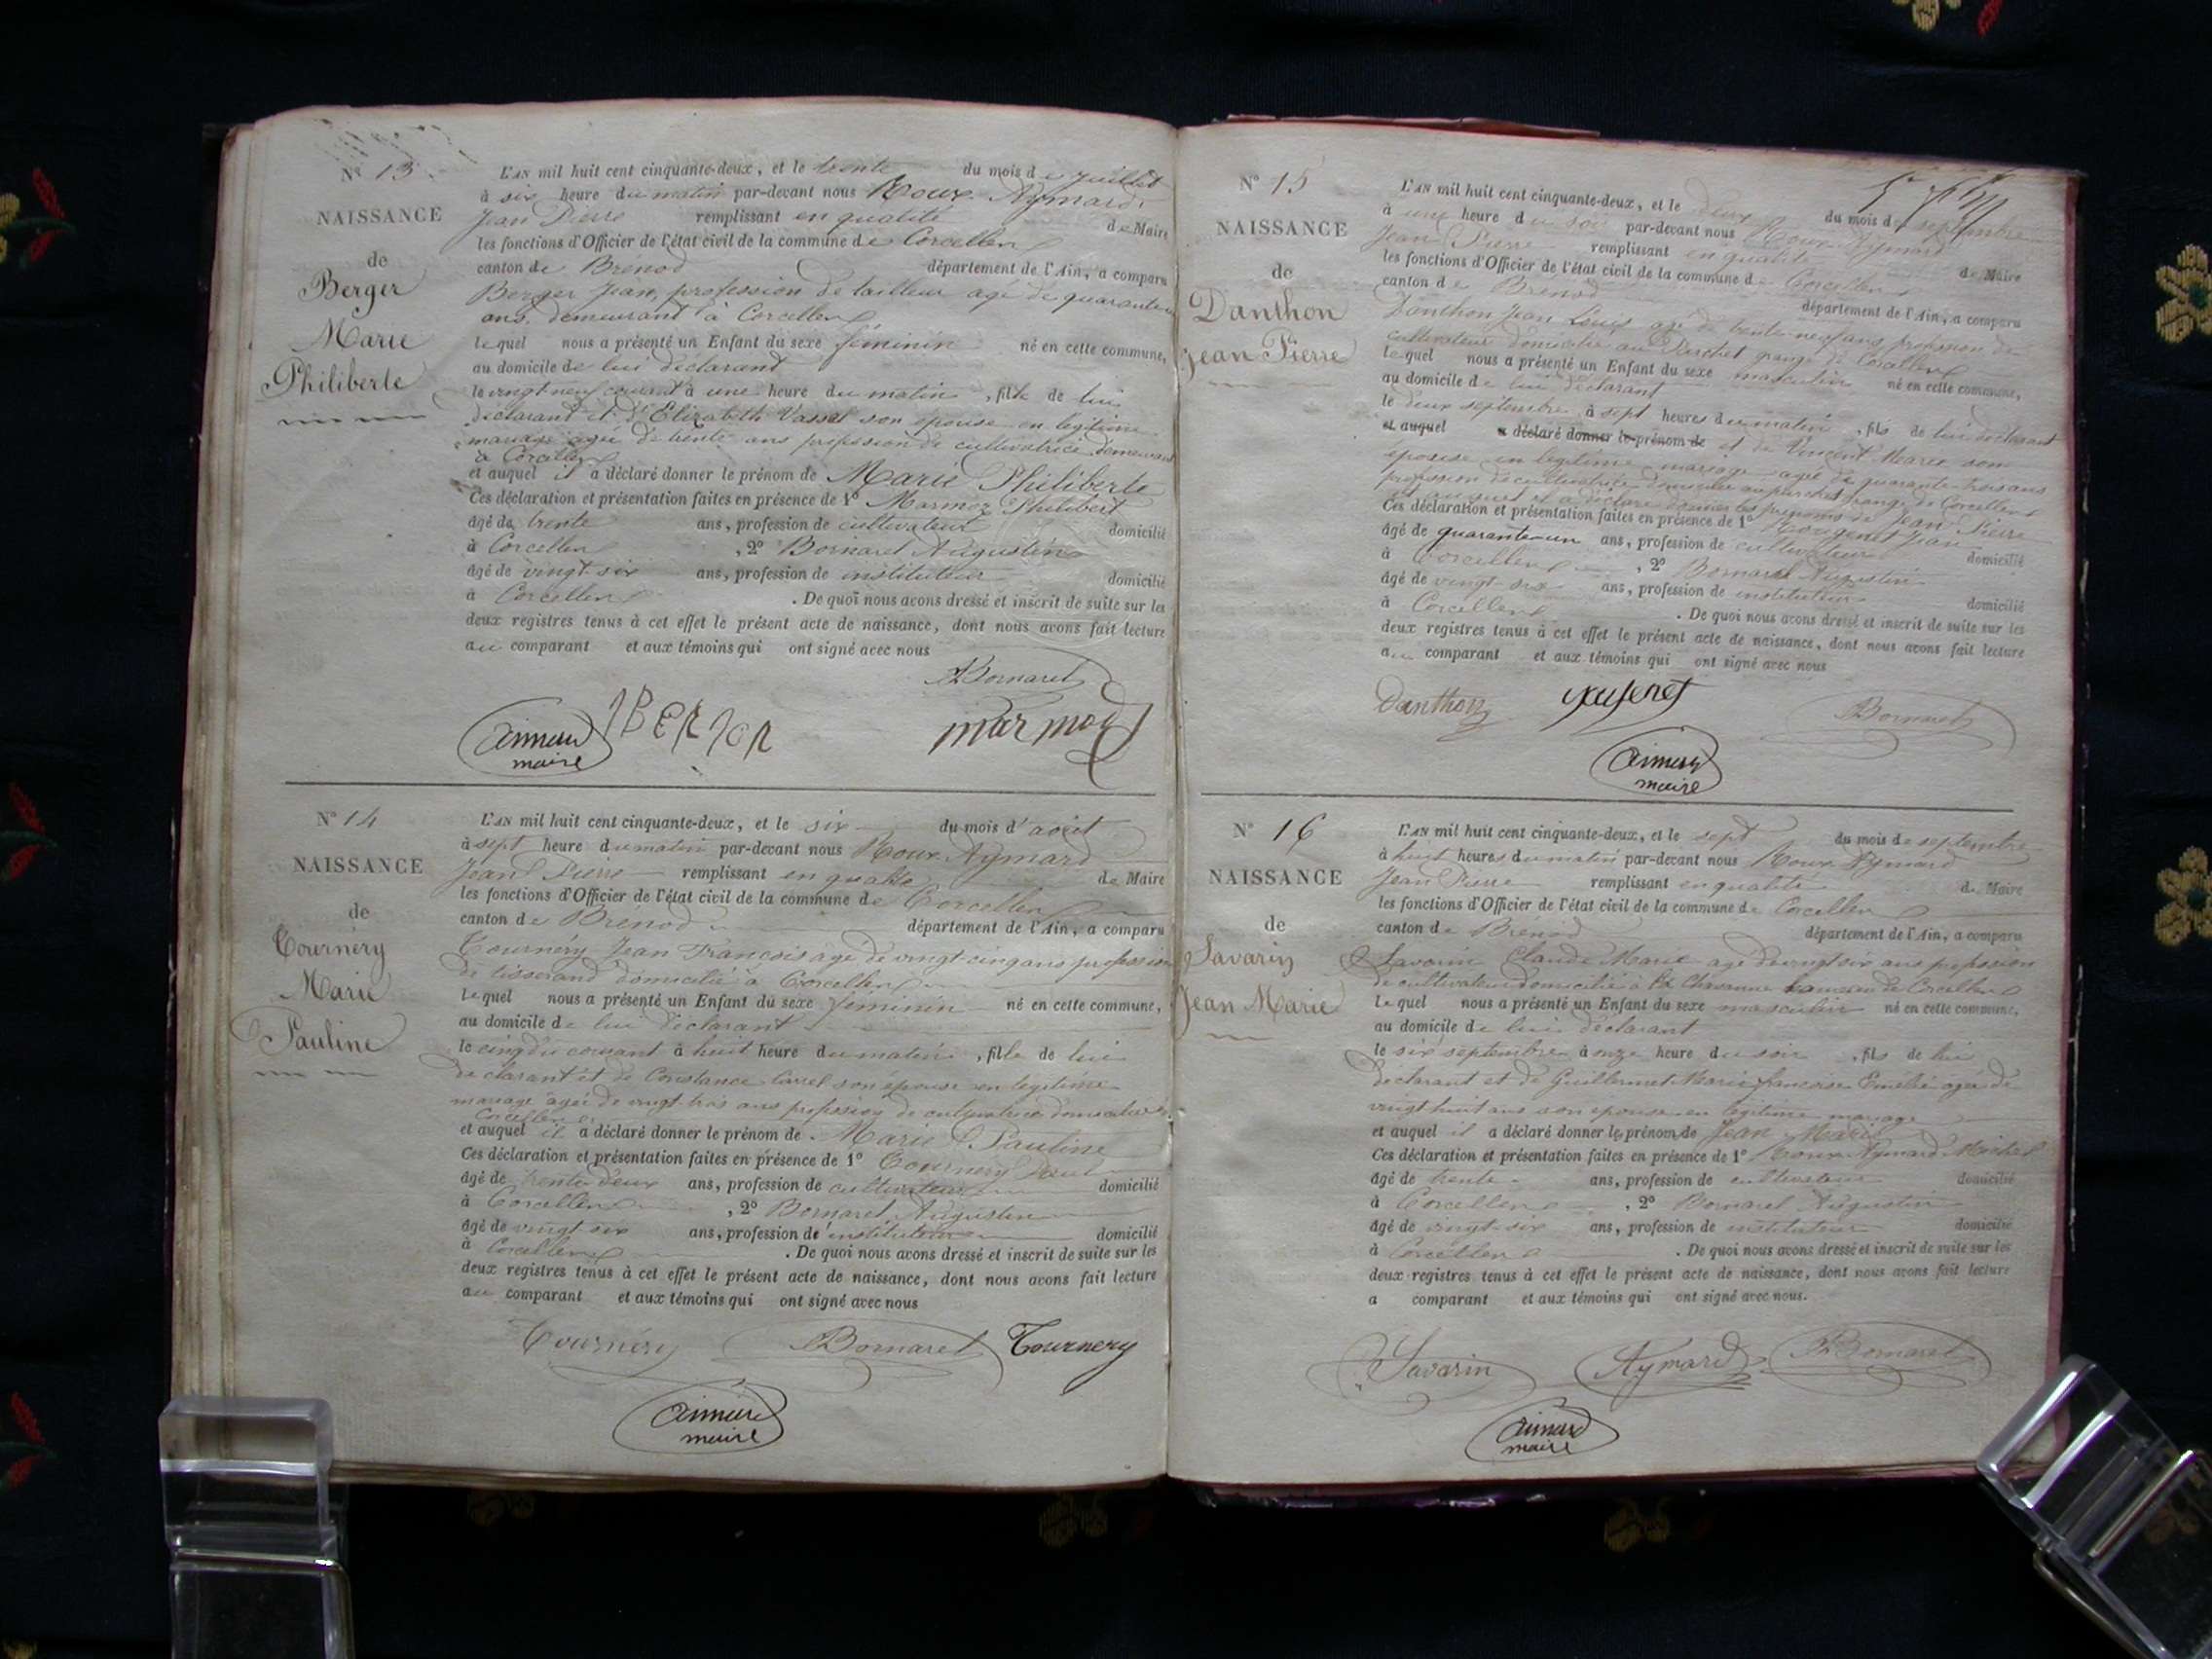 N° 13
NAISSANCE
de
Berger
Marie
Philiberte
L'AN mil huit cent cinquante-deux, et le trente du mois de juillet
à six heure du matin par-devant nous Roux Aymard
Jean Pierre remplissant en qualité de Maire
les fonctions d'Officier de l'état civil de la commune de Corcelles
canton de Brénod département de l'Ain, a comparu
Berger Jean, profession de tailleur agé de quarante
ans demeurant à Corcelles
lequel nous a présenté un Enfant du sexe féminin né en cette commune,
au domicile de lui déclarant
le vingt neuf courant à une heure du matin, fille de lui
déclarant et d'Elizabeth Vassel son épouse en légitime
mariage agée de trente ans profession de cultivatrice demeurant
à Corcelles
et auquel il a déclaré donner le prénom de Marie Philiberte
Ces déclaration et présentation faites en présence de 1° Marmoz Philibert
âgé de trente ans, profession de cultivateur domicilié
à Corcelles, 2° Bornarel Augustin
âgé de vingt-six ans, profession de instituteur domicilié
à Corcelles. De quoi nous avons dressé et inscrit de suite sur les
deux registres tenus à cet effet le présent acte de naissance, dont nous avons fait lecture
au comparant et aux témoins qui ont signé avec nous
Bornarel
marmoz
maire
N° 14
NAISSANCE
de
Tournéry
Marie
Pauline
L'AN mil huit cent cinquante-deux, et le six du mois d'août
à sept heure du matin par-devant nous Roux Aymard
Jean Pierre remplissant en qualité de Maire
les fonctions d'Officier de l'état civil de la commune de Corcelles
canton de Brénod département de l'Ain, a comparu
Tournéry Jean François âgé de vingt-cinq ans profession
de tisserand domicilié à Corcelles
lequel nous a présenté un Enfant du sexe féminin né en cette commune,
au domicile de lui déclarant
le cinq du courant à huit heure du matin, fille de lui
déclarant et de Constance Carrel son épouse en légitime
mariage agée de vingt-trois ans profession de cultivatrice domiciliée à
Corcelles
et auquel il a déclaré donner le prénom de Marie Pauline
Ces déclaration et présentation faites en présence de 1° Tournéry Paul
âgé de trente-deux ans, profession de cultivateur domicilié
à Corcelles, 2° Bornarel Augustin
âgé de vingt-six ans, profession d'instituteur domicilié
à Corcelles. De quoi nous avons dressé et inscrit de suite sur les
deux registres tenus à cet effet le présent acte de naissance, dont nous avons fait lecture
au comparant et aux témoins qui ont signé avec nous
Tournéry Bornarel Tournery
maire
N° 15
NAISSANCE
de
Danthon
Jean Pierre
L'AN mil huit cent cinquante-deux, et le deux du mois de septembre
à une heure du soir par-devant nous Roux Aymard
Jean Pierre remplissant en qualité de Maire
les fonctions d'Officier de l'état civil de la commune de Corcelles
canton de Brénod département de l'Ain, a comparu
Danthon Jean Louis agé de trente-neuf ans profession de
cultivateur domicilié au Parchet grange de Corcelles
lequel nous a présenté un Enfant du sexe masculin né en cette commune,
au domicile de lui déclarant
le deux septembre à sept heures du matin, fils de lui déclarant
et auquel a déclaré donner le prénom de et de Vincent Marie son
épouse en légitime mariage agée de quarante-trois ans
profession de cultivatrice domiciliée au parchet grange de Corcelles
a déclaré donner les prénoms de Jean Pierre
Ces déclaration et présentation faites en présence de 1° Rougenet Jean
âgé de quarante-un ans, profession de cultivateur domicilié
à Corcelles, 2° Bornarel Augustin
âgé de vingt-six ans, profession de instituteur domicilié
à Corcelles. De quoi nous avons dressé et inscrit de suite sur les
deux registres tenus à cet effet le présent acte de naissance, dont nous avons fait lecture
au comparant et aux témoins qui ont signé avec nous
Danthon Bornarel
maire
N° 16
NAISSANCE
de
Savarin
Jean Marie
L'AN mil huit cent cinquante-deux, et le sept du mois de septembre
à huit heures du matin par-devant nous Roux Aymard
Jean Pierre remplissant en qualité de Maire
les fonctions d'Officier de l'état civil de la commune de Corcelles
canton de Brénod département de l'Ain, a comparu
Savarin Claude Marie agé de vingt six ans profession
de cultivateur domicilié à la Chavanne hameau de Corcelles
Lequel nous a présenté un Enfant du sexe masculin né en cette commune,
au domicile de lui déclarant
le six septembre à onze heure du soir, fils de lui
déclarant et de Guillermet Marie françoise Emélie agée de
vingt huit ans son épouse en légitime mariage
et auquel il a déclaré donner le prénom de Jean Marie
Ces déclaration et présentation faites en présence de 1° Roux Aymard Michel
âgé de trente ans, profession de cultivateur domicilié
à Corcelles, 2° Bornarel Augustin
âgé de vingt-six ans, profession de instituteur domicilié
à Corcelles. De quoi nous avons dressé et inscrit de suite sur les
deux registres tenus à cet effet le présent acte de naissance, dont nous avons fait lecture
a comparant et aux témoins qui ont signé avec nous.
Savarin Aymard Bornarel
aimard
maire